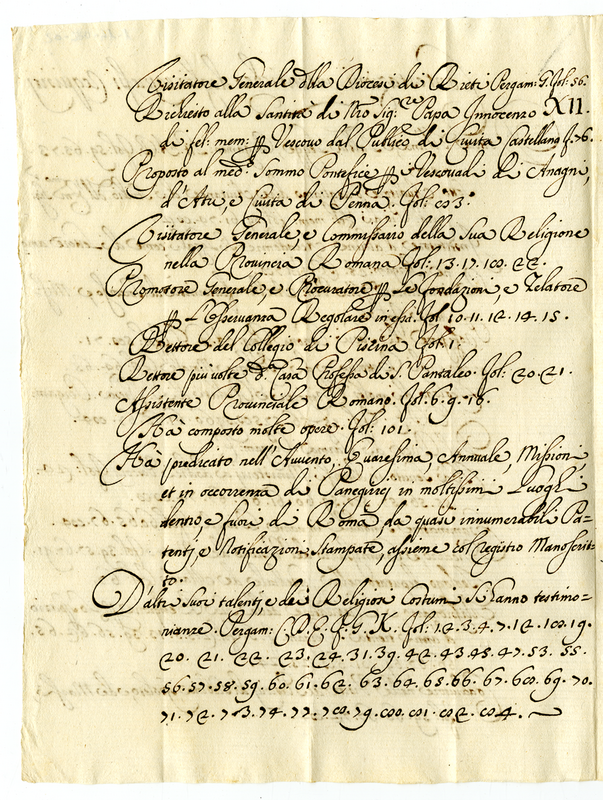 Visitatore Generale della Diocesi di Rieti Pergam: G. fol: 56.
Richiesto alla Santità di Nro Sigre Papa Innocenzo XII.
di fel: mem: p Vescovo dal Publico di Civita Castellana f. 76.
Proposto al medo Sommo Pontefice p i Vescovadi di Anagni,
d'Atri, e Civita di Penna. fol: 83.
Visitatore Generale, e Commissario della Sua Religione
nella Provincia Romana fol: 13. 17. 18. 22.
Promotore Generale, e Procuratore p Le Fondazioni, e Zelatore
p L'Osservanza Regolare in essa. fol 10. 11. 12. 14. 15.
Rettore del Collegio di Fol: 1.
Rettore piu volte d. Casa Professa di S. Pantaleo. fol: 20. 21.
Assistente Provinciale Romano. fol. 6. 9. 16.
Hà composto molte opere. fol: 101.
Hà predicato nell'Avvento, Quaresima, Annuale, Missioni,
et in occorrenza di Panegirici in moltissimi Luoghi
dentro, e fuori di Roma da quasi innumerabili Pa=
tenti, e Notificazioni Stampate, assieme col registro Manoscrit=
to.
D'altri suoi talenti, e de i Religiosi Costumi Si hanno testimo=
nianze. Pergam: C. D. E. F. G. K. fol: 1. 2. 3. 4. 7. 12. 18. 19.
20. 21. 22. 23. 24. 31. 39. 42. 43. 45. 47. 53. 55.
56. 57. 58. 59. 60. 61. 62. 63. 64. 65. 66. 67. 68. 69. 70.
71. 72. 73. 74. 77. 78. 79. 80. 81. 82. 84.